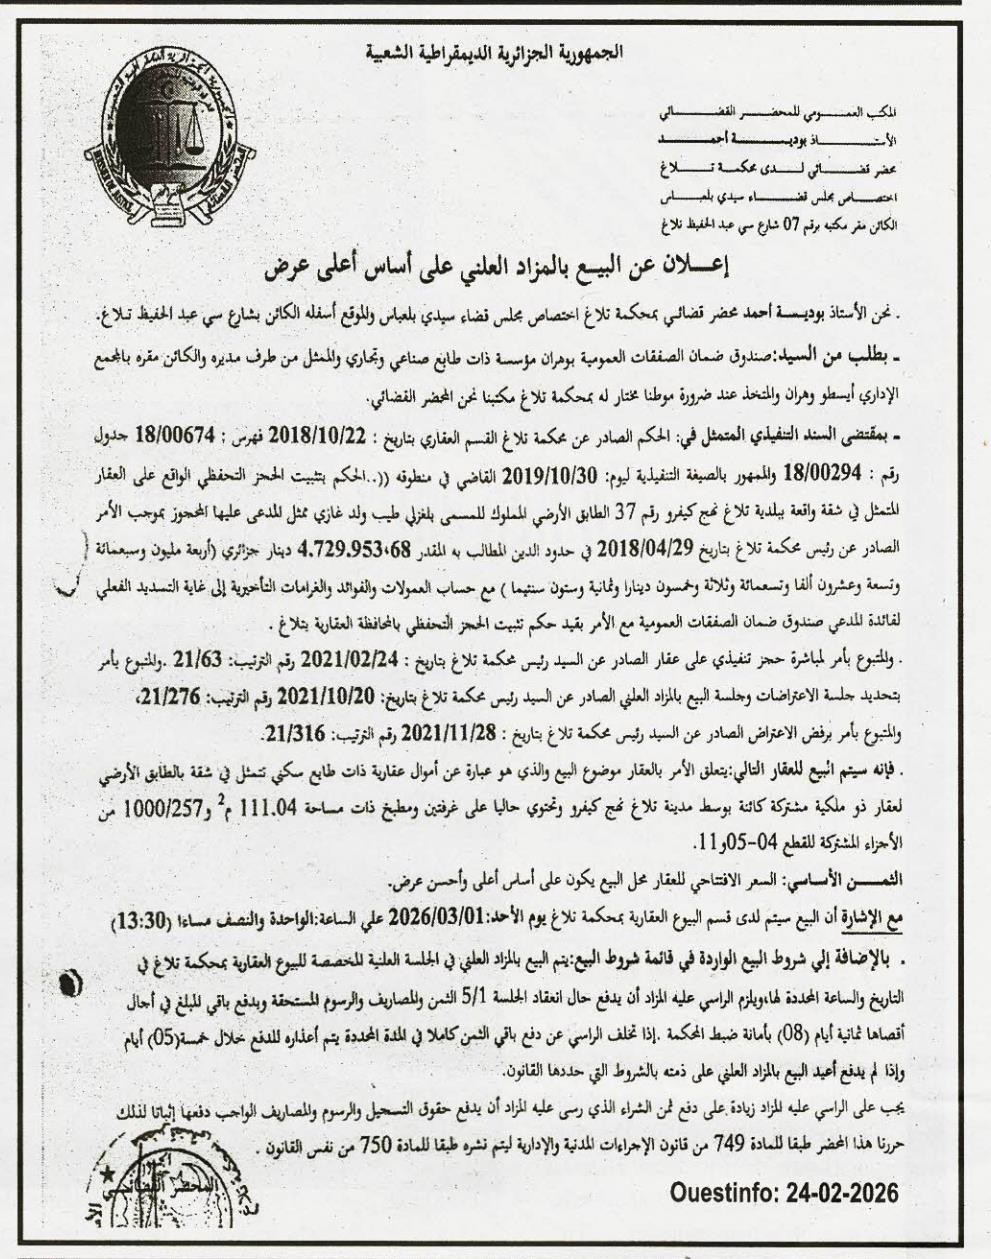 الجمهورية الجزائرية الديمقراطية الشعبية
المكتب العمومي للمحضر القضائي
الأستاذ بوديسة أحمد
محضر قضائي لدى محكمة تلاغ
اختصاص مجلس قضاء سيدي بلعباس
الكائن مقر مكتبه برقم 07 شارع سي عبد الحفيظ تلاغ
إعلان عن البيع بالمزاد العلني على أساس أعلى عرض
. نحن الأستاذ بوديسة أحمد محضر قضائي بمحكمة تلاغ اختصاص مجلس قضاء سيدي بلعباس والموقع أسفله الكائن بشارع سي عبد الحفيظ تلاغ.
ـ بطلب من السيد:صندوق ضمان الصفقات العمومية بوهران مؤسسة ذات طابع صناعي وتجاري والممثل من طرف مديره والكائن مقره بالمجمع
الإداري أيسطو وهران والمتخذ عند ضرورة موطنا مختار له بمحكمة تلاغ مكتبنا نحن المحضر القضائي.
ـ بمقتضى السند التنفيذي المتمثل في: الحكم الصادر عن محكمة تلاغ القسم العقاري بتاريخ : 2018/10/22 فهرس : 18/00674 جدول
رقم : 18/00294 والممهور بالصيغة التنفيذية ليوم: 2019/10/30 القاضي في منطوقه ((..الحكم بتثبيت الحجز التحفظي الواقع على العقار
المتمثل في شقة واقعة ببلدية تلاغ نهج كيفرو رقم 37 الطابق الأرضي المملوك للمسمى بلغزلي طيب ولد غازي ممثل للمدعى عليها المحجوز بموجب الأمر
الصادر عن رئيس محكمة تلاغ بتاريخ 2018/04/29 في حدود الدين المطالب به المقدر 4.729.953،68 دينار جزائري (أربعة مليون وسبعمائة
وتسعة وعشرون ألفا وتسعمائة وثلاثة وخمسون دينارا وثمانية وستون سنتيما ) مع حساب العمولات والفوائد والغرامات التأخيرية إلى غاية التسديد الفعلي
لفائدة المدعي صندوق ضمان الصفقات العمومية مع الأمر بقيد حكم تثبيت الحجز التحفظي بالمحافظة العقارية بتلاغ .
. والمتبوع بأمر لمباشرة حجز تنفيذي على عقار الصادر عن السيد رئيس محكمة تلاغ بتاريخ : 2021/02/24 رقم الترتيب: 21/63 .والمتبوع بأمر
بتحديد جلسة الاعتراضات وجلسة البيع بالمزاد العلني الصادر عن السيد رئيس محكمة تلاغ بتاريخ: 2021/10/20 رقم الترتيب: 21/276،
والمتبوع بأمر برفض الاعتراض الصادر عن السيد رئيس محكمة تلاغ بتاريخ : 2021/11/28 رقم الترتيب: 21/316.
. فإنه سيتم البيع للعقار التالي:يتعلق الأمر بالعقار موضوع البيع والذي هو عبارة عن أموال عقارية ذات طابع سكني تتمثل في شقة بالطابق الأرضي
لعقار ذو ملكية مشتركة كائنة بوسط مدينة تلاغ نهج كيفرو وتحتوي حاليا على غرفتين ومطبخ ذات مساحة 111.04 م2 و1000/257 من
الأجزاء المشتركة للقطع 04-05و11.
الثمن الأساسي: السعر الافتتاحي للعقار محل البيع يكون على أساس أعلى وأحسن عرض.
مع الإشارة أن البيع سيتم لدى قسم البيوع العقارية بمحكمة تلاغ يوم الأحد:2026/03/01 على الساعة:الواحدة والنصف مساءا (13:30)
. بالإضافة إلى شروط البيع الواردة في قائمة شروط البيع:يتم البيع بالمزاد العلني في الجلسة العلنية المخصصة للبيوع العقارية بمحكمة تلاغ في
التاريخ والساعة المحددة لها،ويلزم الراسي عليه المزاد أن يدفع حال انعقاد الجلسة 5/1 الثمن والمصاريف والرسوم المستحقة ويدفع باقي المبلغ في أجال
أقصاها ثمانية أيام (08) بأمانة ضبط المحكمة .إذا تخلف الراسي عن دفع باقي الثمن كاملا في المدة المحددة يتم أعذاره للدفع خلال خمسة(05) أيام
وإذا لم يدفع أعيد البيع بالمزاد العلني على ذمته بالشروط التي حددها القانون.
يجب على الراسي عليه المزاد زيادة على دفع ثمن الشراء الذي رسى عليه المزاد أن يدفع حقوق التسجيل والرسوم والمصاريف الواجب دفعها إثباتا لذلك
حررنا هذا المحضر طبقا للمادة 749 من قانون الإجراءات المدنية والإدارية ليتم نشره طبقا للمادة 750 من نفس القانون .
المحضر القضائي
Ouestinfo: 24-02-2026